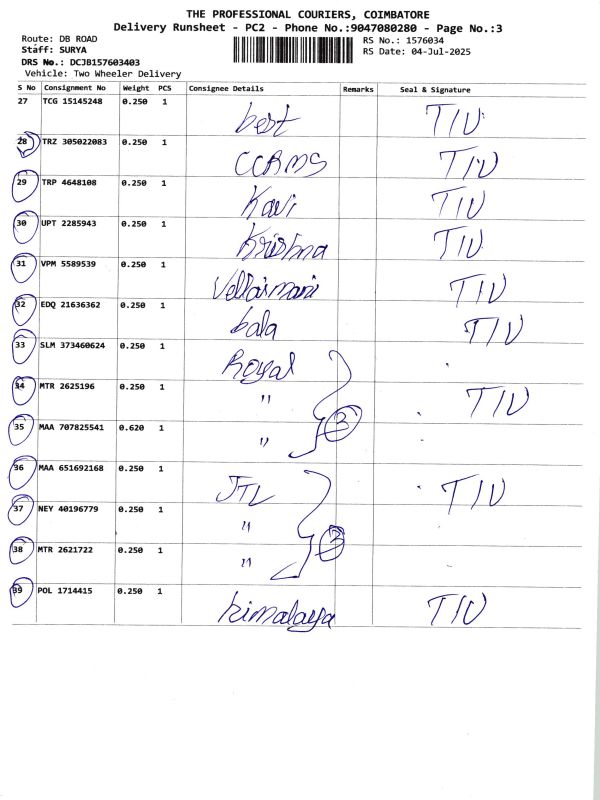 THE PROFESSIONAL COURIERS, COIMBATORE
Delivery Runsheet - PC2 - Phone No.:9047080280 - Page No.:3
Route: DB ROAD
RS No.: 1576034
Staff: SURYA
RS Date: 04-Jul-2025
DRS No.: DCJB157603403
Vehicle: Two Wheeler Delivery
S No Consignment No Weight PCS Consignee Details Remarks Seal & Signature
27 TCG 15145248 0.250 1 best T/U
28 TRZ 305022083 0.250 1 CCRMS T/U
29 TRP 4648108 0.250 1 Kavi T/U
30 UPT 2285943 0.250 1 Krishna T/U
31 VPM 5589539 0.250 1 Vellaimani T/U
32 EDQ 21636362 0.250 1 bala T/U
33 SLM 373460624 0.250 1 Royal
34 MTR 2625196 0.250 1 " T/U
35 MAA 707825541 0.620 1 " 3
36 MAA 651692168 0.250 1 JTL T/U
37 NEY 40196779 0.250 1 "
38 MTR 2621722 0.250 1 " 3
39 POL 1714415 0.250 1 himalaya T/U